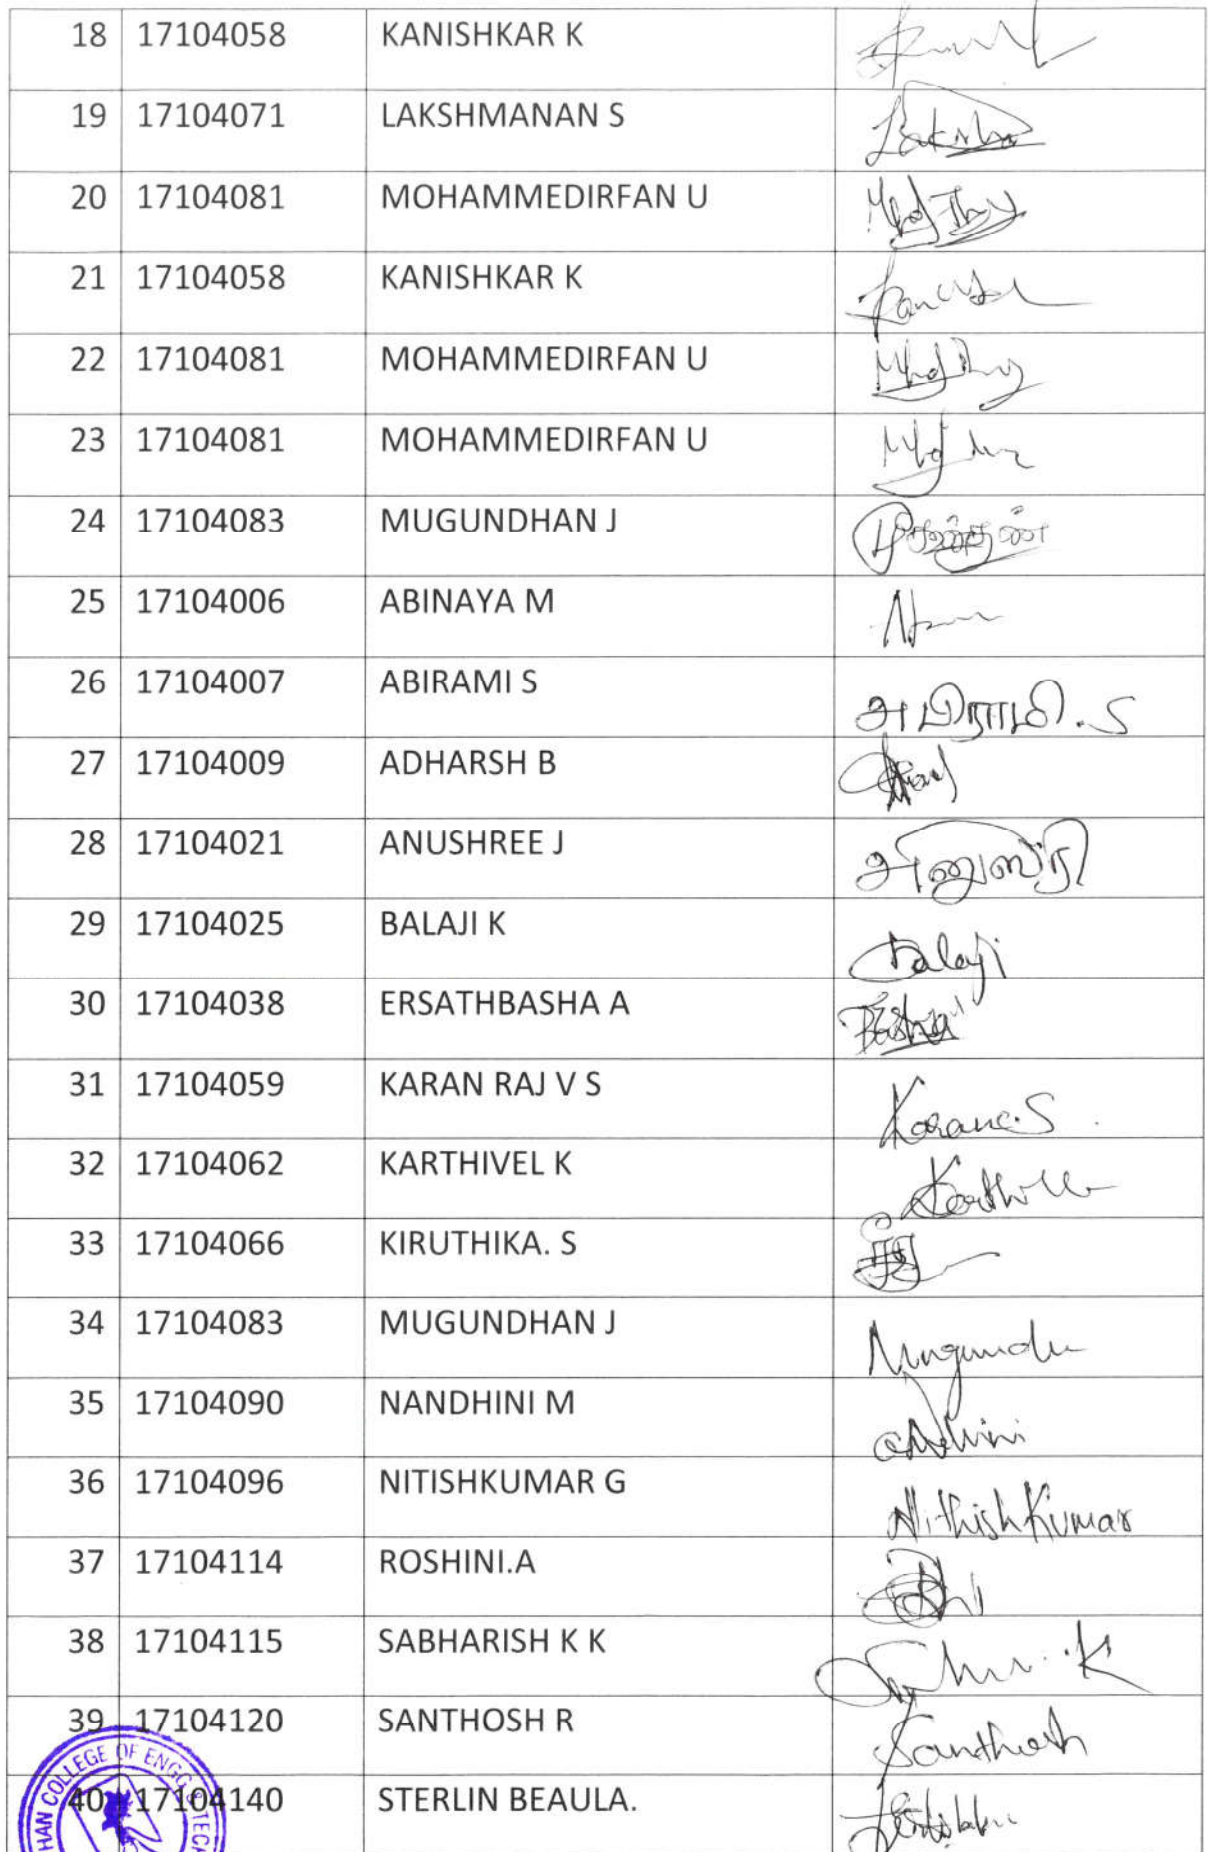 18 17104058 KANISHKAR K
19 17104071 LAKSHMANAN S Laksh
20 17104081 MOHAMMEDIRFAN U
21 17104058 KANISHKAR K
22 17104081 MOHAMMEDIRFAN U
23 17104081 MOHAMMEDIRFAN U
24 17104083 MUGUNDHAN J
25 17104006 ABINAYA M
26 17104007 ABIRAMI S அபிராமி.S
27 17104009 ADHARSH B
28 17104021 ANUSHREE J அனுஸ்ரீ
29 17104025 BALAJI K Balaji
30 17104038 ERSATHBASHA A Basha
31 17104059 KARAN RAJ V S
32 17104062 KARTHIVEL K
33 17104066 KIRUTHIKA. S
34 17104083 MUGUNDHAN J
35 17104090 NANDHINI M
36 17104096 NITISHKUMAR G Nithish Kumar
37 17104114 ROSHINI.A
38 17104115 SABHARISH K K
39 17104120 SANTHOSH R Santhosh
40 17104140 STERLIN BEAULA.
HAN COLLEGE OF ENGG & TECH